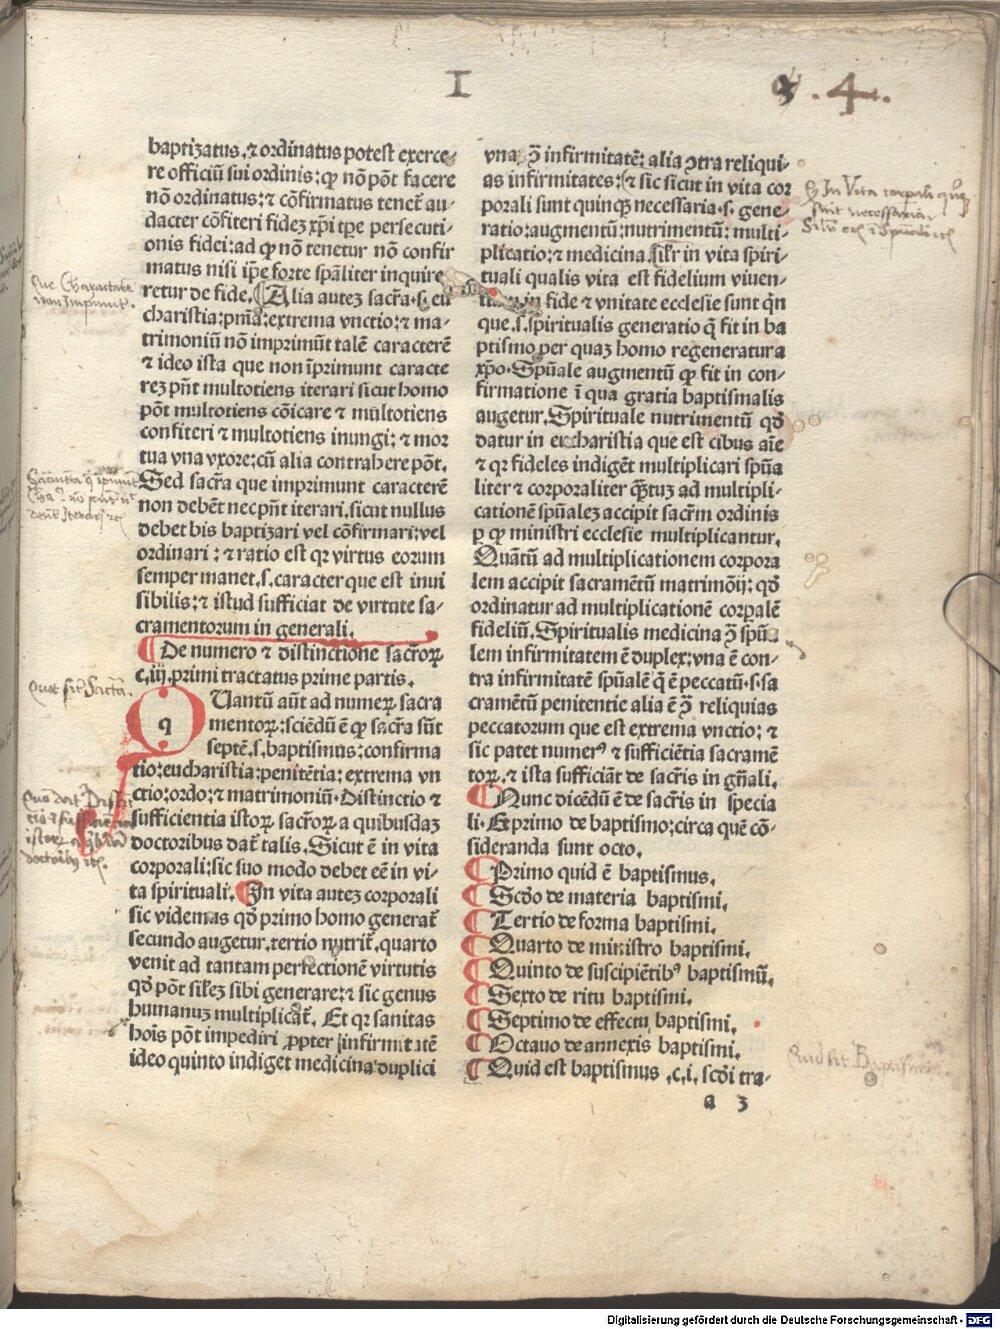 I
4.
baptizatus.⁊ ordinatus potest exerce-
re officiū sui ordinis: qꝫ nō pōt facere
nō ordinatus: ⁊ cōfirmatus tenet̄ au-
dacter cōfiteri fidez xp̄i tp̄e persecuti-
onis fidei: ad qꝫ nō tenetur nō confir
matus nisi ip̄e forte sp̄aliter inquire
retur de fide. ¶ Alia autez sacr̄a.s. eu
charistia: pn̄ia: extrema vnctio: ⁊ ma-
trimoniū nō imprimūt talē caracterē
⁊ ideo ista que non īprimunt caracte
rez pn̄t multotiens iterari sicut homo
pōt multotiens cōicare ⁊ multotiens
confiteri ⁊ multotiens inungi: ⁊ mor
tua vna vxore: cū alia contrahere pōt.
Sed sacr̄a que imprimunt caracterē
non debēt nec pn̄t iterari. sicut nullus
debet bis baptizari vel cōfirmari: vel
ordinari: ⁊ ratio est qꝛ virtus eorum
semper manet.s. caracter que est inui
sibilis: ⁊ istud sufficiat de virtute sa-
cramentorum in generali.
¶ De numero ⁊ distinctione sacr̄oꝝ
c.iij. primi tractatus prime partis.
Quot sūt Sacr̄ta.
q Uantū aūt ad numeꝝ sacra
mentoꝝ: sciēdū ē qꝫ sacr̄a sūt
septē.s. baptismus: confirma
tio: eucharistia: penitētia: extrema vn
ctio: ordo: ⁊ matrimoniū. Distinctio ⁊
sufficientia istoꝝ sacr̄oꝝ a quibusdaz
doctoribus dat̄ talis. Sicut ē in vita
corporali: sic suo modo debet eē in vi-
ta spirituali. ¶ In vita autez corporali
sic videmas qđ primo homo generat̄
secundo augetur. tertio nutrit̄. quarto
venit ad tantam perfectionē virtutis
qđ pōt sil'ez sibi generare: ⁊ sic genus
humanuz multiplicat̄. Et qꝛ sanitas
hoīs pōt impediri ꝓpter infirmitatē
ideo quinto indiget medicina duplici
vna ꝯ̄ infirmitatē: alia ꝯtra reliqui-
as infirmitates: ⁊ sic sicut in vita cor
porali sunt quinqꝫ necessaria.s. gene-
ratio: augmentū: nutrimentū: multi-
plicatio: ⁊ medicina. sil'r in vita spiri-
tuali qualis vita est fidelium viuen-
tium in fide ⁊ vnitate ecclesie sunt qn̄
que.s. spiritualis generatio q̄ fit in ba
ptismo per quaz homo regeneratur a
xp̄o. Spūale augmentū qꝫ fit in con-
firmatione ī qua gratia baptismalis
augetur. Spirituale nutrimentū qđ
datur in eucharistia que est cibus aīe
⁊ qꝛ fideles indigēt multiplicari spūa
liter ⁊ corporaliter qꝫtuz ad multipli-
cationē spūalez accipit sacr̄m ordinis
ꝑ qꝫ ministri ecclesie multiplicantur.
Quātū ad multiplicationem corpora
lem accipit sacramētū matrimōij: qđ
ordinatur ad multiplicationē corpalē
fideliū. Spiritualis medicina ꝯ̄ spūa
lem infirmitatem ē duplex: vna ē con-
tra infirmitatē spūalē q̄ ē peccatū.s. sa
cramētū penitentie alia ē ꝯ̄ reliquias
peccatorum que est extrema vnctio: ⁊
sic patet numerꝰ ⁊ sufficiētia sacramē
toꝝ. ⁊ ista sufficiāt de sacr̄is in gn̄ali.
¶ Nunc dicēdū ē de sacr̄is in specia
li. Et primo de baptismo: circa quē cō-
sideranda sunt octo.
¶ Primo quid ē baptismus.
¶ Scđo de materia baptismi.
¶ Tertio de forma baptismi.
¶ Quarto de ministro baptismi.
¶ Quinto de suscipiētibꝰ baptismū.
¶ Sexto de ritu baptismi.
¶ Septimo de effectu baptismi.
¶ Octauo de annexis baptismi.
¶ Quid est baptismus .c.i. scđi tra-
Quid sit Baptismus
a 3
Digitalisierung gefördert durch die Deutsche Forschungsgemeinschaft - DFG